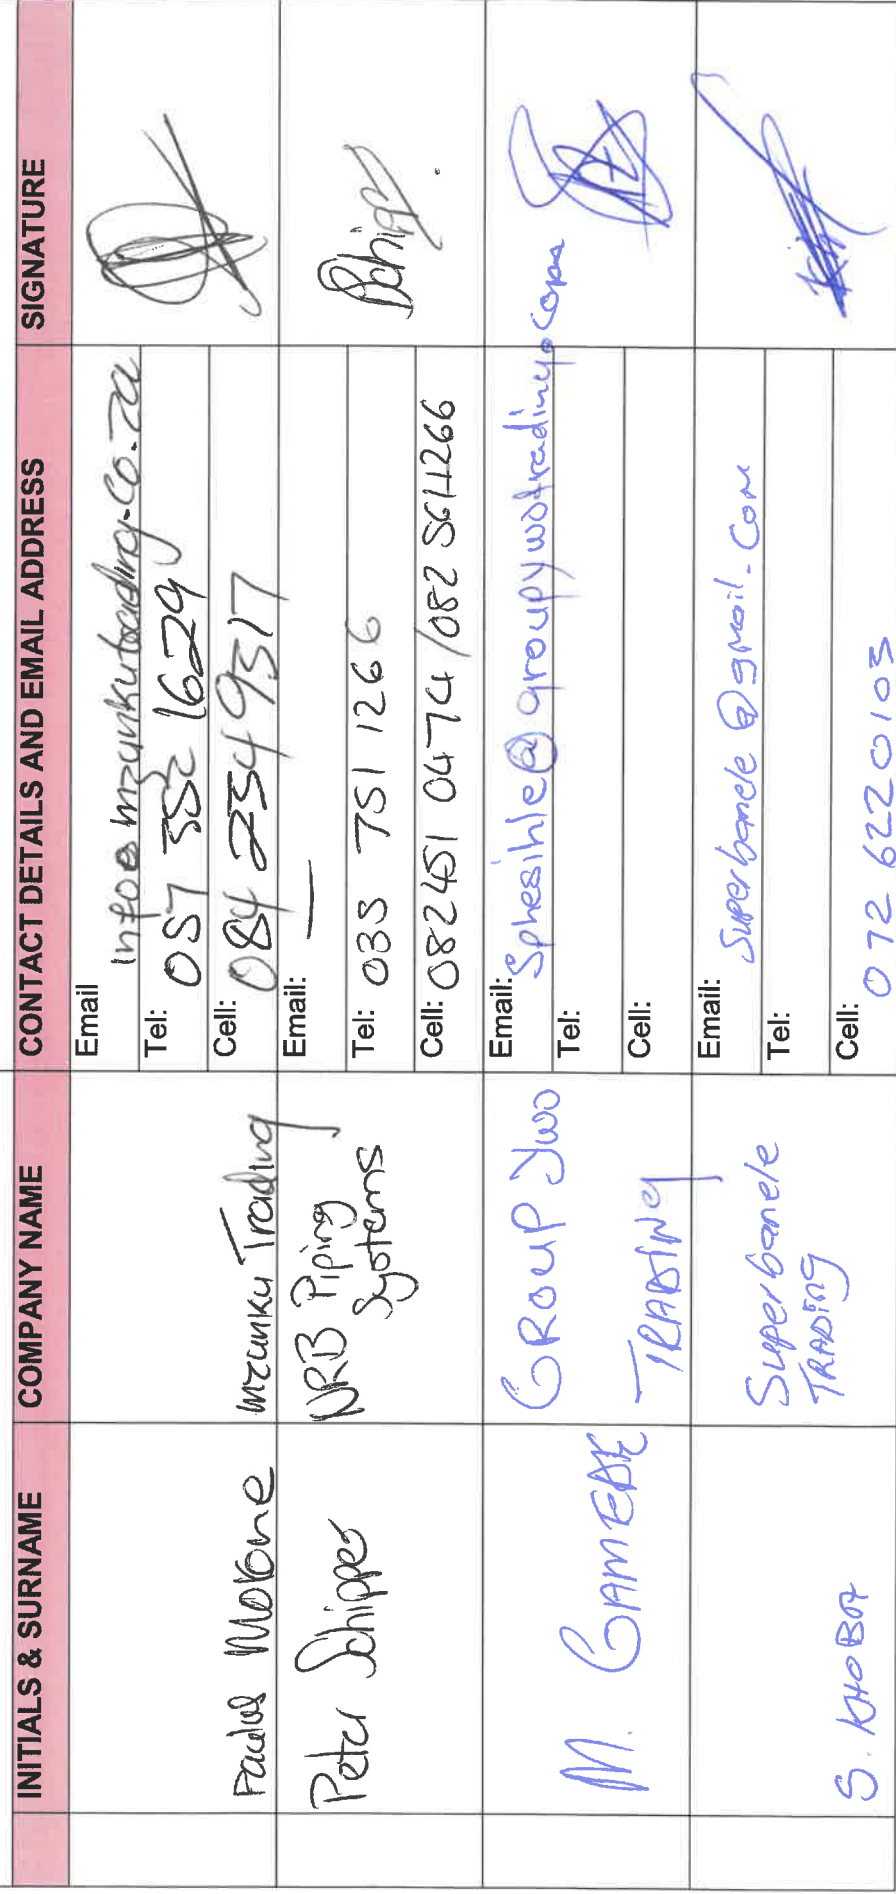 INITIALS & SURNAME COMPANY NAME CONTACT DETAILS AND EMAIL ADDRESS SIGNATURE
Paulos Morone
Mzunku Trading
Email
info@mzunkutrading.co.za
Tel: 057 352 1629
Cell: 084 2549317
Peter Schipper
NRB Piping
Systems
Email: —
Tel: 035 751 1266
Cell: 082 451 0474 / 082 5641266
M. GAMEDE
GROUP YWO
TRADING
Email: Sphesihle@groupywotrading.com
Tel:
Cell:
S. KHOBA
Superbanele
TRADING
Email: Superbanele@gmail.com
Tel:
Cell: 072 6220103